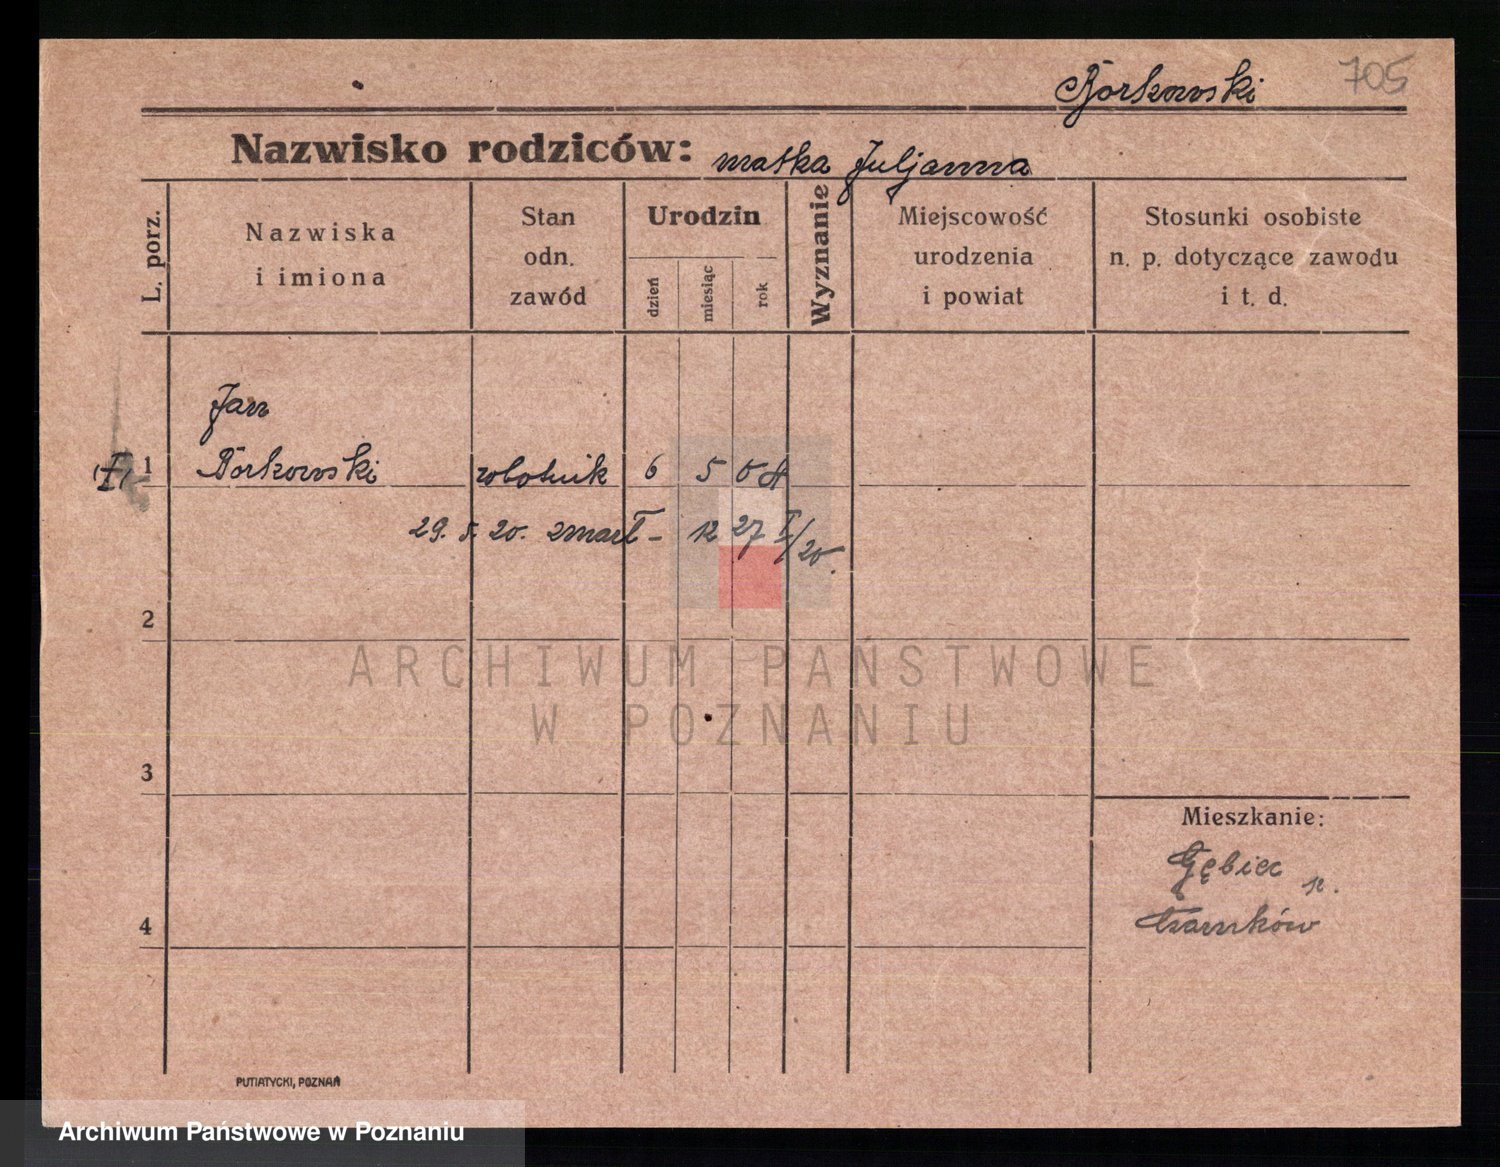 Borkowski 705
Nazwisko rodziców: matka Juljanna
L. porz.
Nazwiska
i imiona
Stan
odn.
zawód
Urodzin
dzień
miesiąc
rok
Wyznanie
Miejscowość
urodzenia
i powiat
Stosunki osobiste
n. p. dotyczące zawodu
i t. d.
Jan
1 Borkowski robotnik 6 5
29. 5. 20. zmarł - 27
2
ARCHIWUM PAŃSTWOWE
W POZNANIU
3
Mieszkanie:
Gębice
4 Czarnków
PUTIATYCKI, POZNAŃ
Archiwum Państwowe w Poznaniu